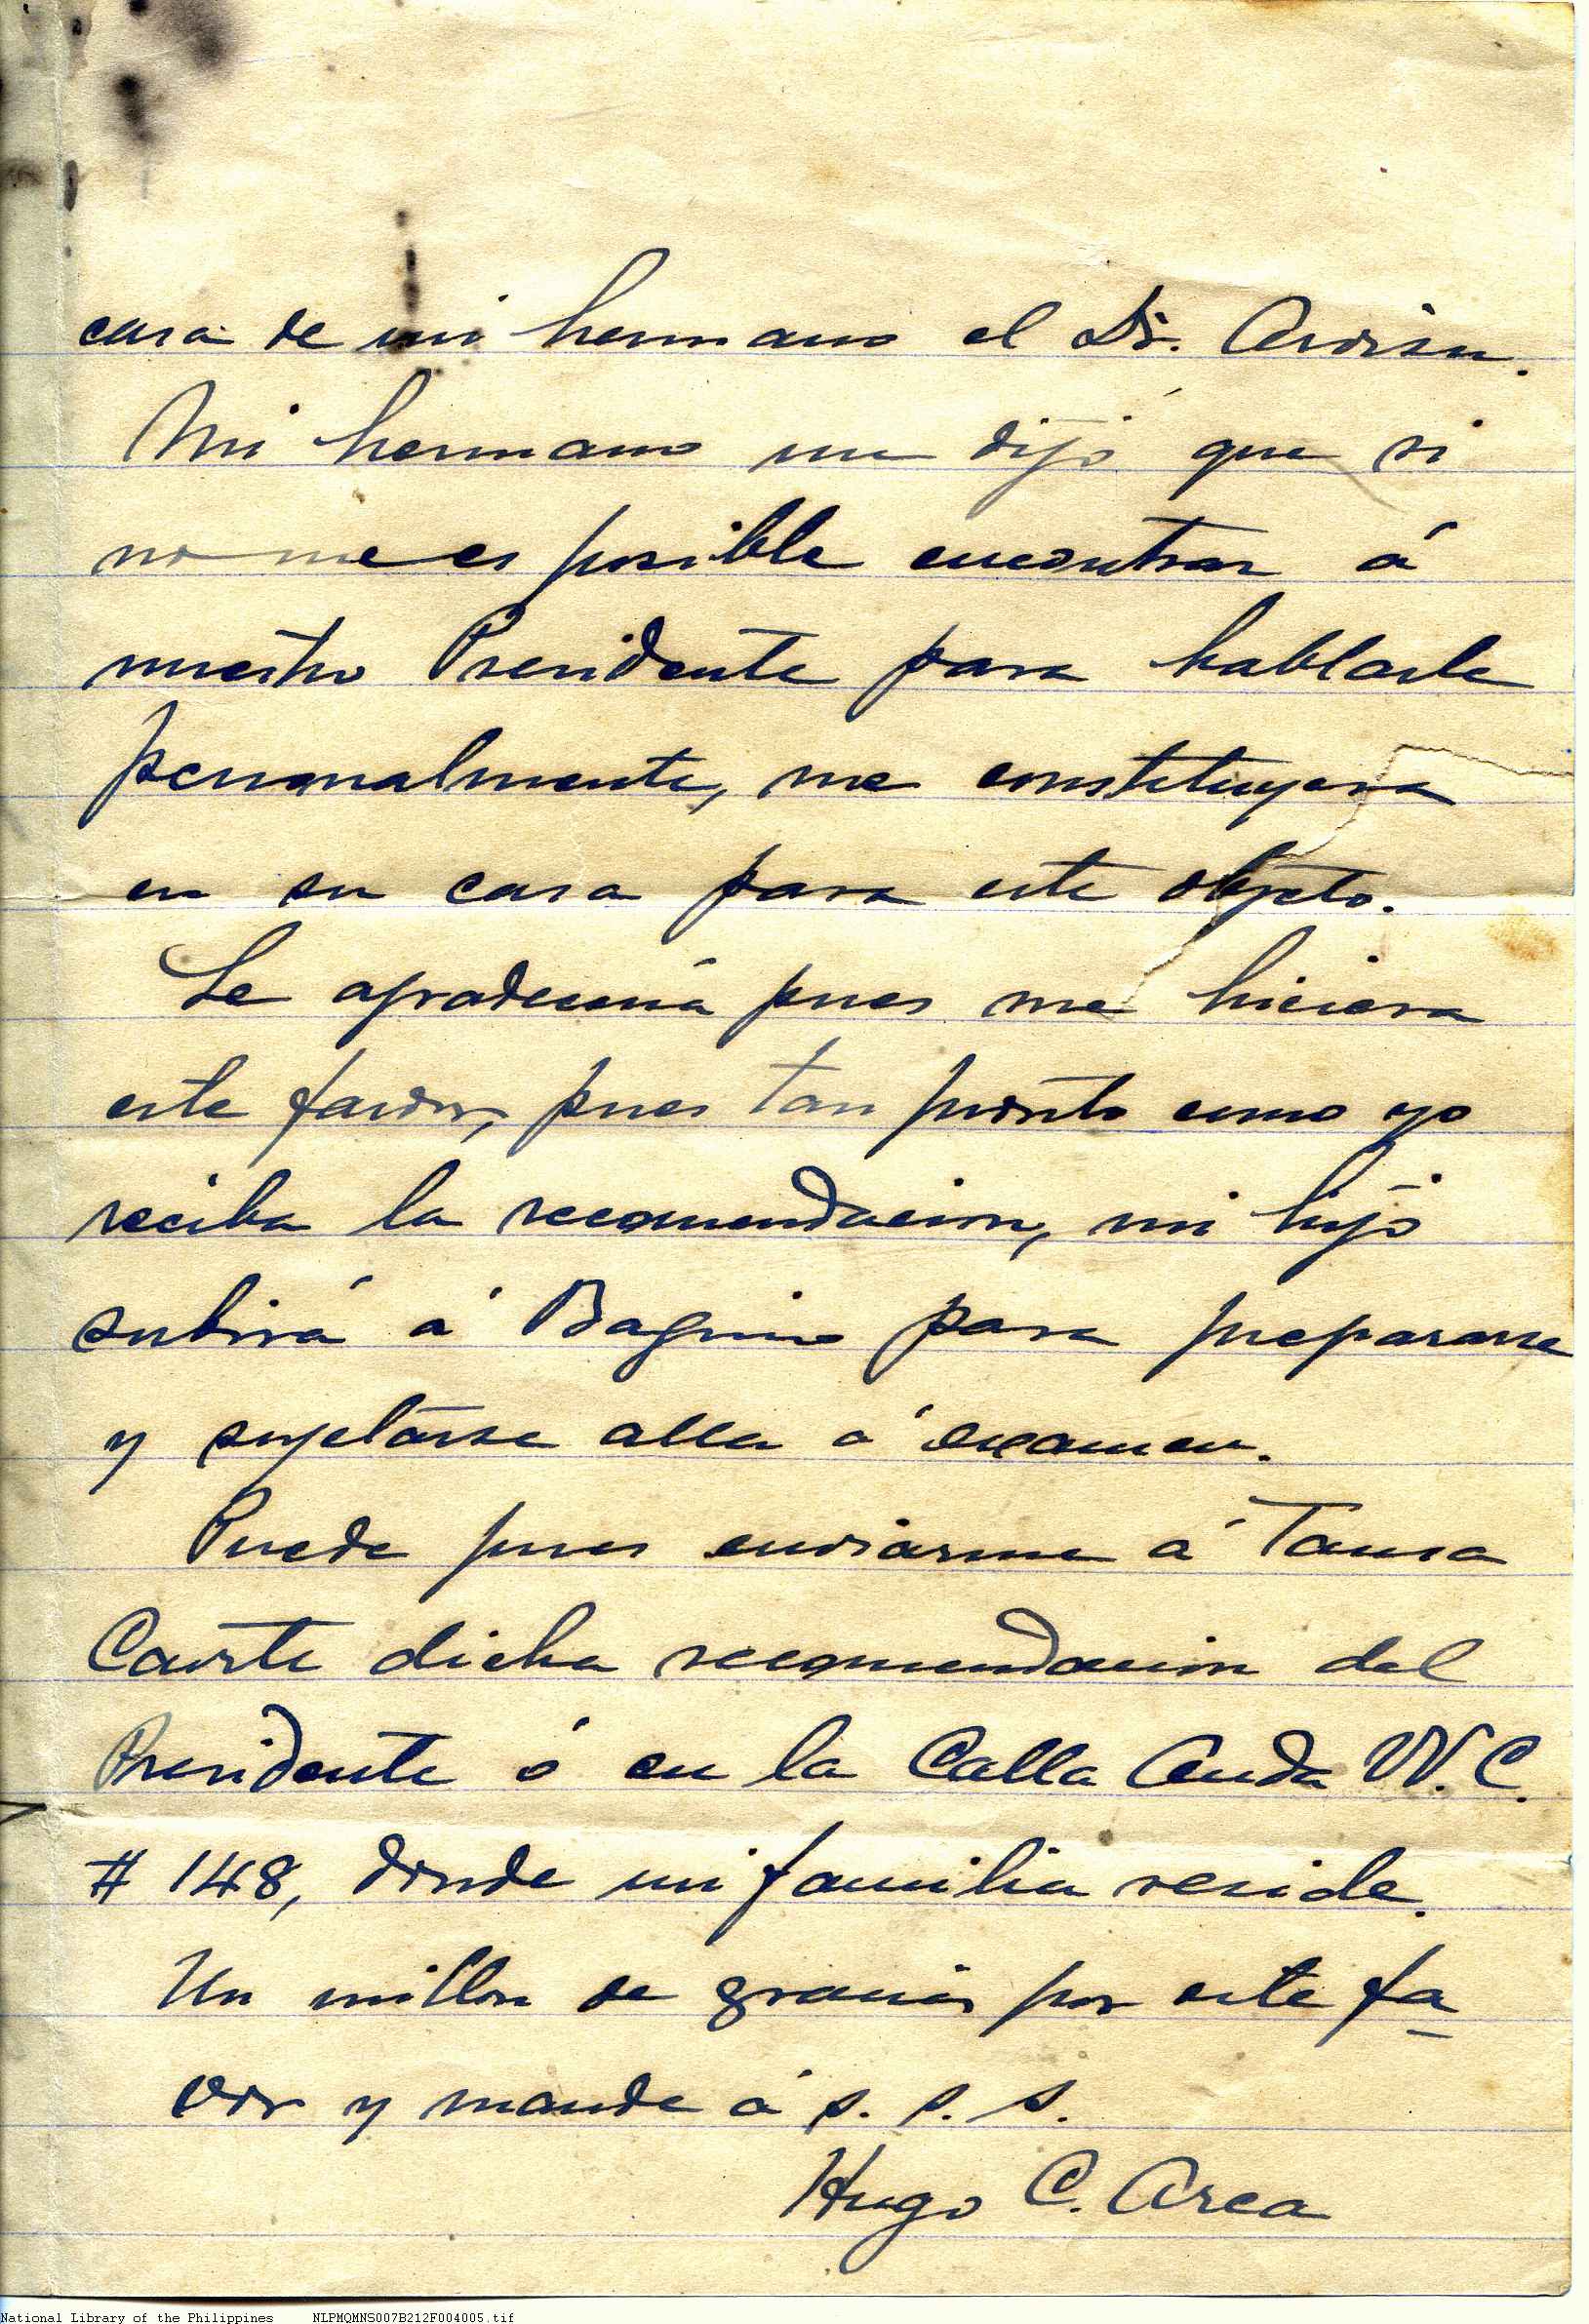 casa de mi hermano el Dr.
Mi hermano me dijo que si
no me es posible encontrar á
nuestro Presidente para hablarle
personalmente, me constituyera
en su casa para este objeto.
Le agradecería pues me hiciera
este favor, pues tan pronto como yo
reciba la recomendacion, mi hijo
subirá á Baguio para prepararse
y sujetarse alla á examen.
Puede pues enviarme á Tanza
Cavite dicha recomendacion del
Presidente ó en la Calle Anda W. C.
# 148, donde mi familia reside.
Un millon de gracias por este fa-
vor y mande á s. s. s.
Hugo C. Arca
National Library of the Philippines NLPMQMNS007B212F004005.tif